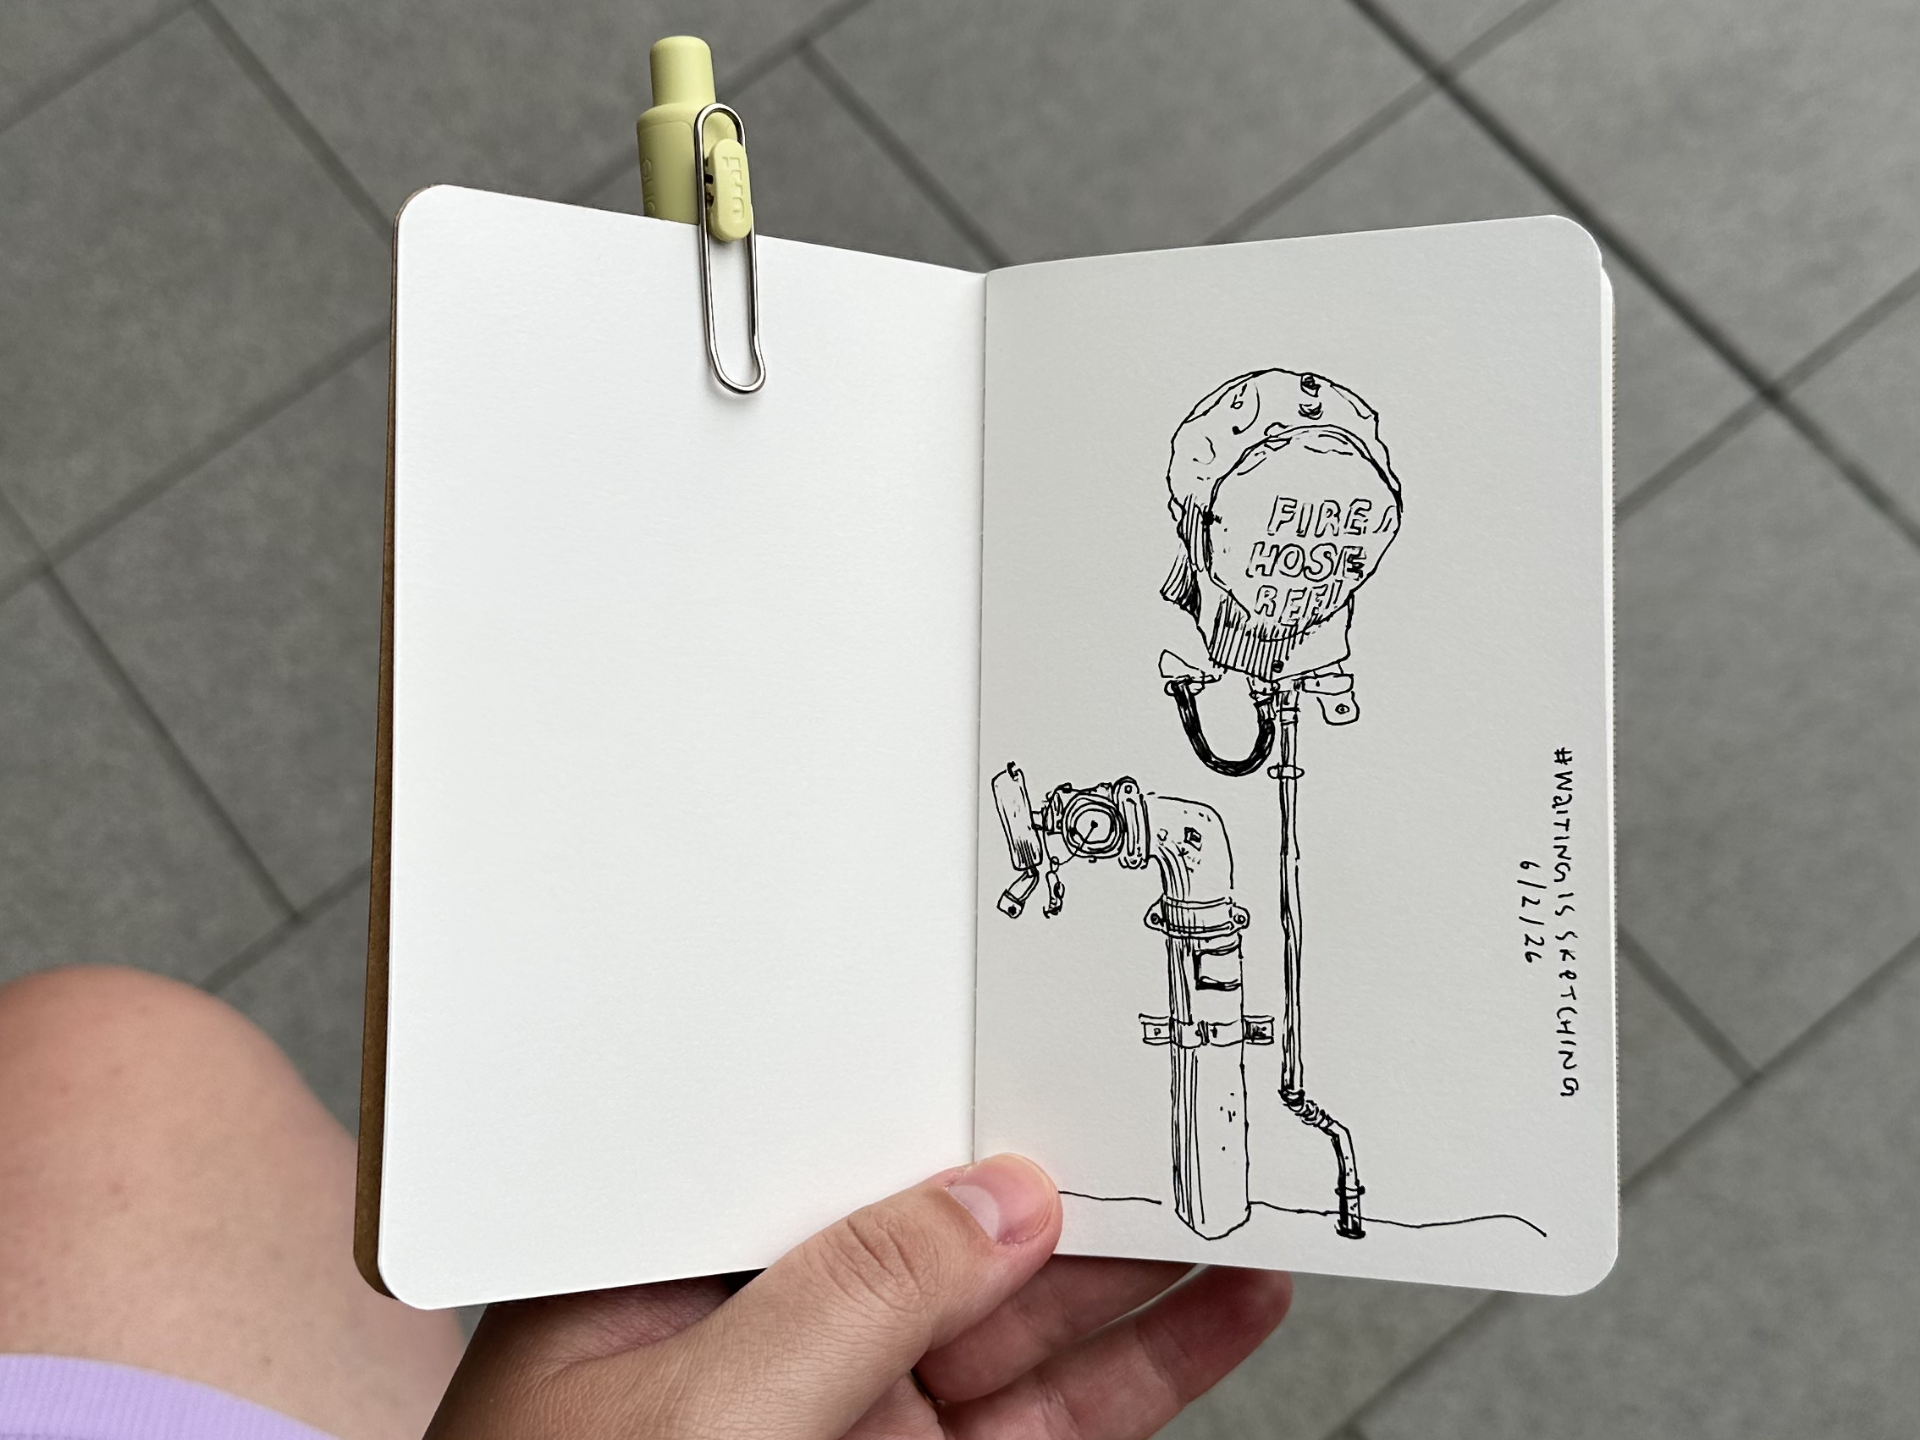 FIRE
HOSE
REEL
#WAITINGISSKETCHING
6/2/26